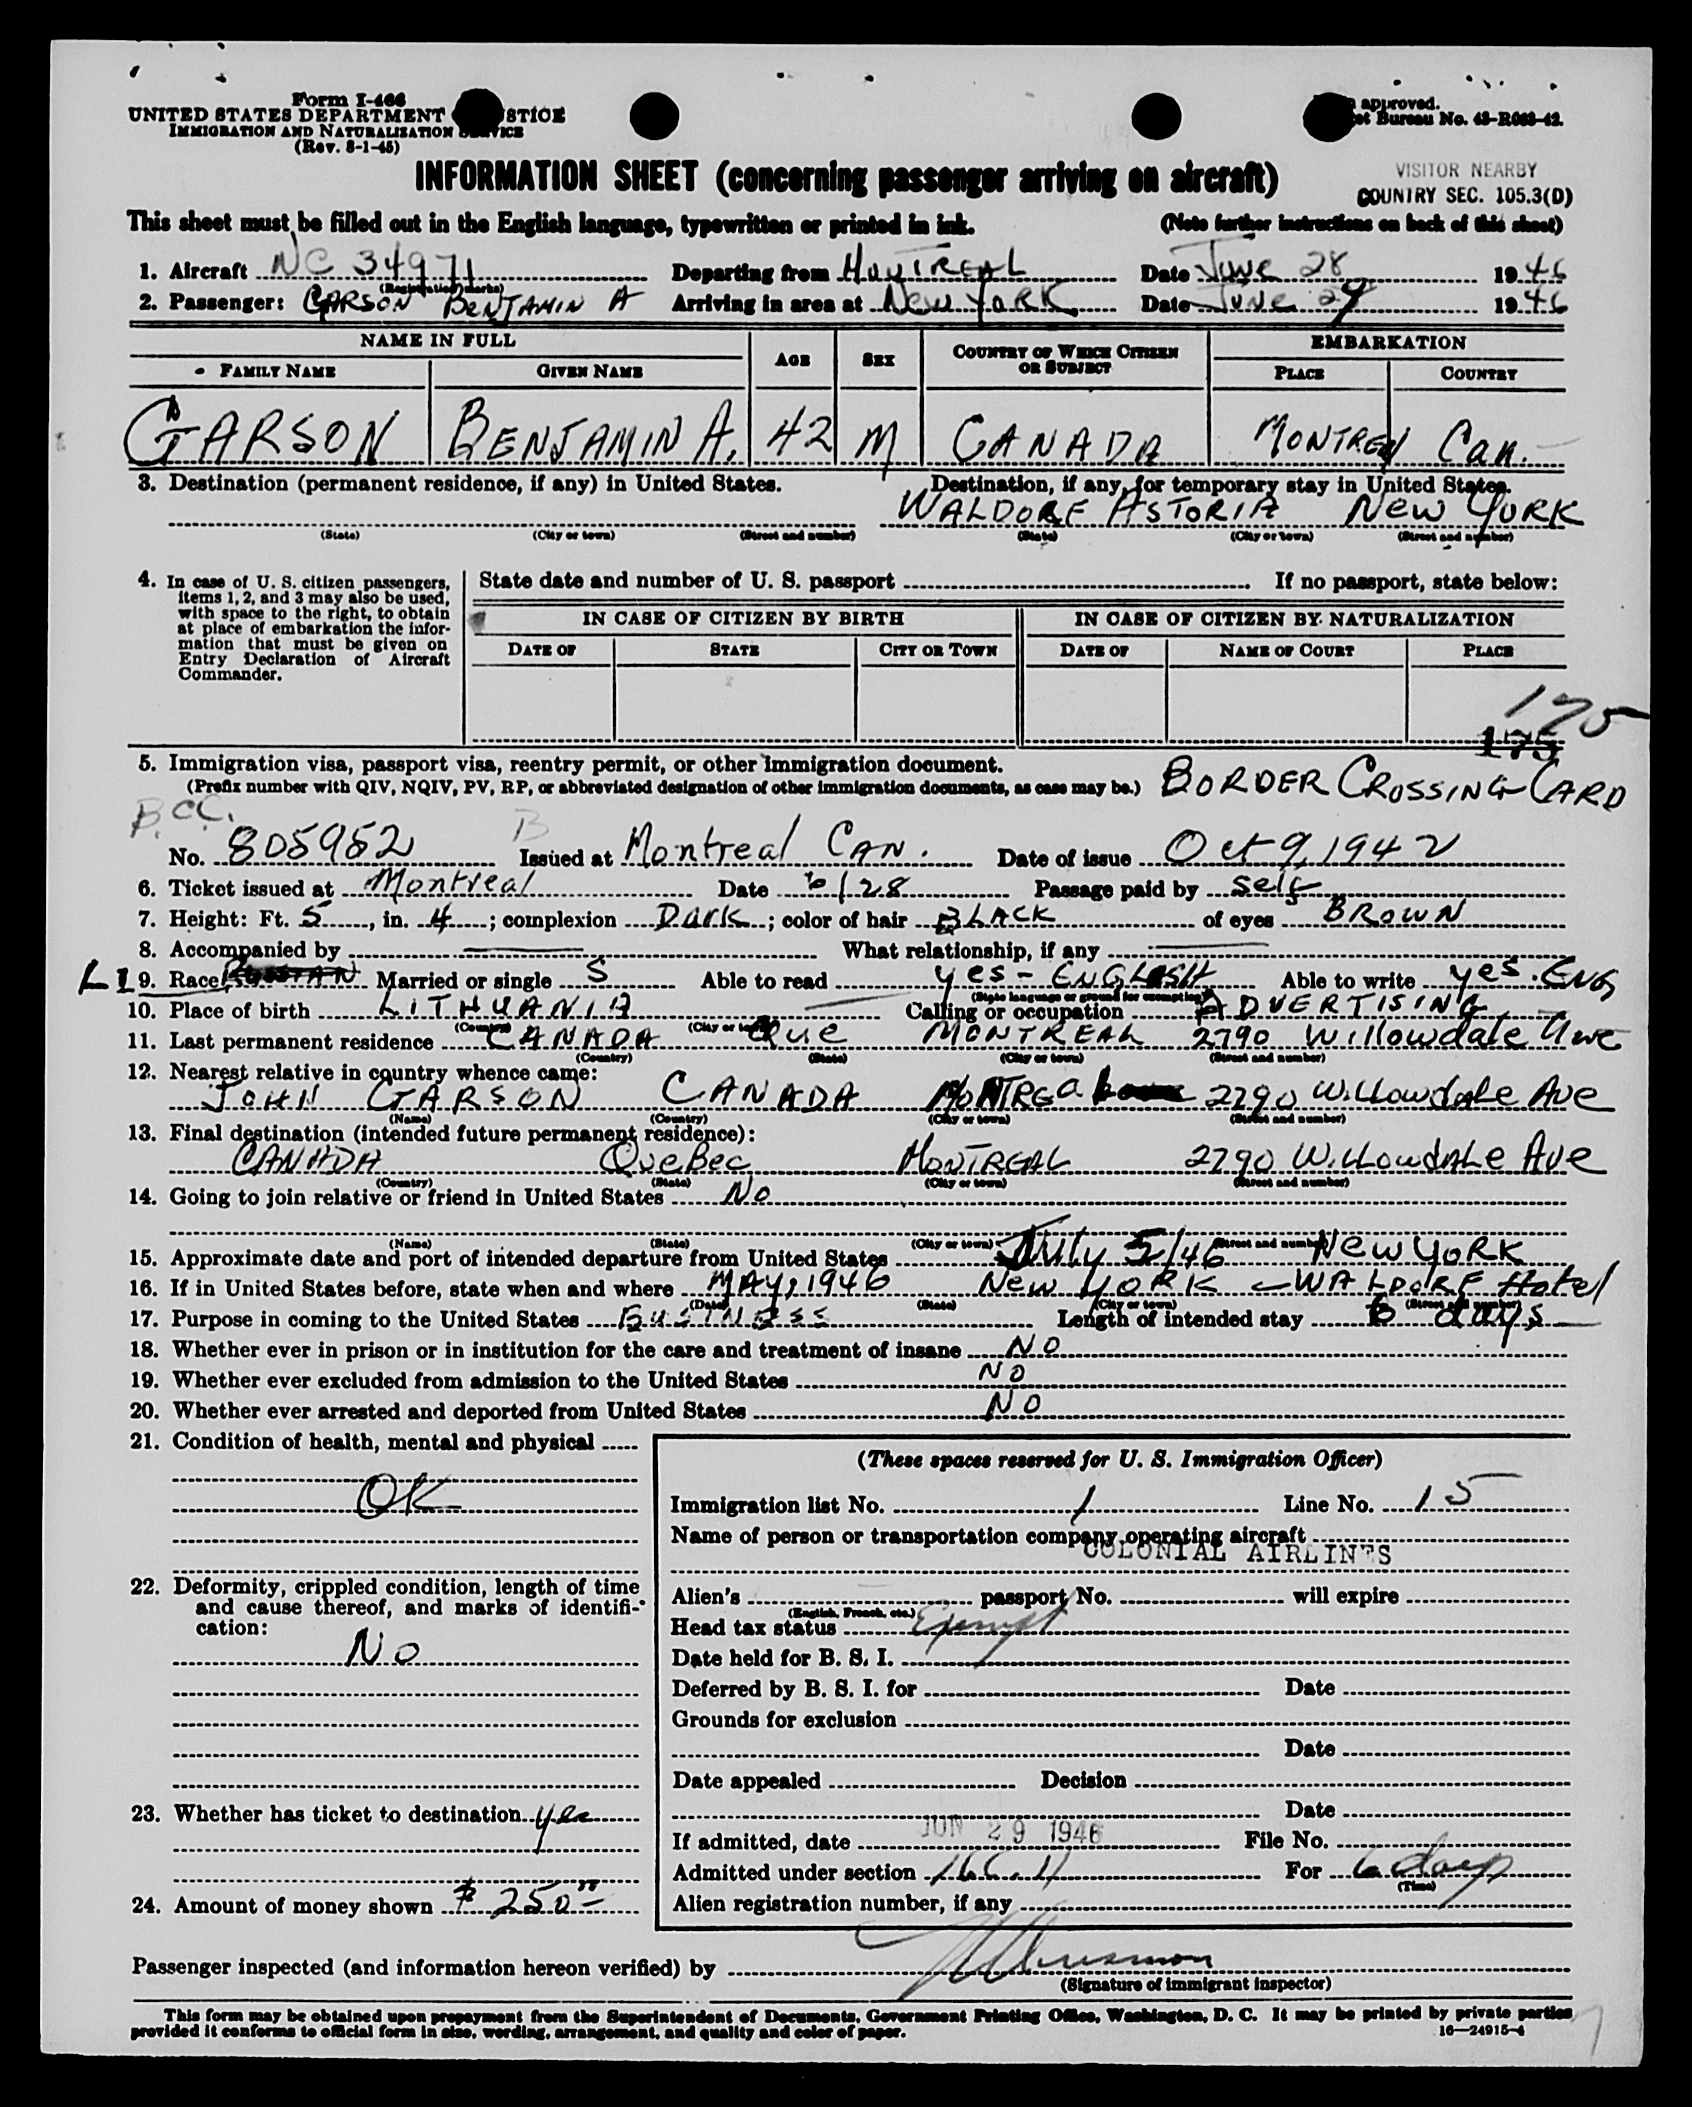 Form I-466
UNITED STATES DEPARTMENT STICE
IMMIGRATION AND NATURALIZATION SERVICE
(Rev. 8-1-45)
approved.
et Bureau No. 43-R063-42.
INFORMATION SHEET (concerning passenger arriving on aircraft)
VISITOR NEARBY
COUNTRY SEC. 105.3(D)
This sheet must be filled out in the English language, typewritten or printed in ink. (Note further instructions on back of this sheet)
1. Aircraft NC 34971 Departing from MONTREAL Date JUNE 28 1946
(Registration marks)
2. Passenger: GARSON BENJAMIN A Arriving in area at NEW YORK Date JUNE 29 1946
NAME IN FULL AGE SEX COUNTRY OF WHICH CITIZEN OR SUBJECT EMBARKATION
FAMILY NAME GIVEN NAME PLACE COUNTRY
GARSON BENJAMIN A. 42 M CANADA MONTREAL Can.
3. Destination (permanent residence, if any) in United States. Destination, if any, for temporary stay in United States.
WALDORF ASTORIA NEW YORK
(State) (City or town) (Street and number) (State) (City or town) (Street and number)
4. In case of U. S. citizen passengers, items 1, 2, and 3 may also be used, with space to the right, to obtain at place of embarkation the information that must be given on Entry Declaration of Aircraft Commander.
State date and number of U. S. passport If no passport, state below:
IN CASE OF CITIZEN BY BIRTH IN CASE OF CITIZEN BY NATURALIZATION
DATE OF STATE CITY OR TOWN DATE OF NAME OF COURT PLACE
175
175
5. Immigration visa, passport visa, reentry permit, or other immigration document.
(Prefix number with QIV, NQIV, PV, RP, or abbreviated designation of other immigration documents, as case may be.) BORDER CROSSING CARD
B.C.C. B
No. 805952 Issued at Montreal CAN. Date of issue Oct 9, 1942
6. Ticket issued at Montreal Date 6/28 Passage paid by self
7. Height: Ft. 5, in. 4; complexion Dark; color of hair BLACK of eyes BROWN
8. Accompanied by What relationship, if any
LI 9. Race Married or single S Able to read yes - ENGLISH Able to write yes. ENG
(State language or ground for exemption)
10. Place of birth LITHUANIA Calling or occupation ADVERTISING
(Country) (City or town)
11. Last permanent residence CANADA Que MONTREAL 2790 Willowdale Ave
(Country) (State) (City or town) (Street and number)
12. Nearest relative in country whence came:
JOHN GARSON CANADA MONTREAL 2790 Willowdale Ave
(Name) (Country) (City or town) (Street and number)
13. Final destination (intended future permanent residence):
CANADA QueBec MONTREAL 2790 WiLLowdALe Ave
(Country) (State) (City or town) (Street and number)
14. Going to join relative or friend in United States No
(Name) (State) (City or town) (Street and number)
15. Approximate date and port of intended departure from United States July 5/46 New YORK
16. If in United States before, state when and where MAY, 1946 New YORK - WALDORF Hotel
(Date) (State) (City or town) (Street and number)
17. Purpose in coming to the United States BUSINESS Length of intended stay 6 days
18. Whether ever in prison or in institution for the care and treatment of insane NO
19. Whether ever excluded from admission to the United States NO
20. Whether ever arrested and deported from United States NO
21. Condition of health, mental and physical
OK
22. Deformity, crippled condition, length of time and cause thereof, and marks of identification:
No
23. Whether has ticket to destination yes
24. Amount of money shown $ 250
(These spaces reserved for U. S. Immigration Officer)
Immigration list No. 1 Line No. 15
Name of person or transportation company operating aircraft
COLONIAL AIRLINES
Alien's passport No. will expire
(English, French, etc.)
Head tax status Exempt
Date held for B. S. I.
Deferred by B. S. I. for Date
Grounds for exclusion
Date
Date appealed Decision
Date
If admitted, date JUN 29 1946 File No.
Admitted under section For 6 days
(Time)
Alien registration number, if any
Passenger inspected (and information hereon verified) by
(Signature of immigrant inspector)
This form may be obtained upon prepayment from the Superintendent of Documents, Government Printing Office, Washington, D. C. It may be printed by private parties
provided it conforms to official form in size, wording, arrangement, and quality and color of paper. 16—24915-4